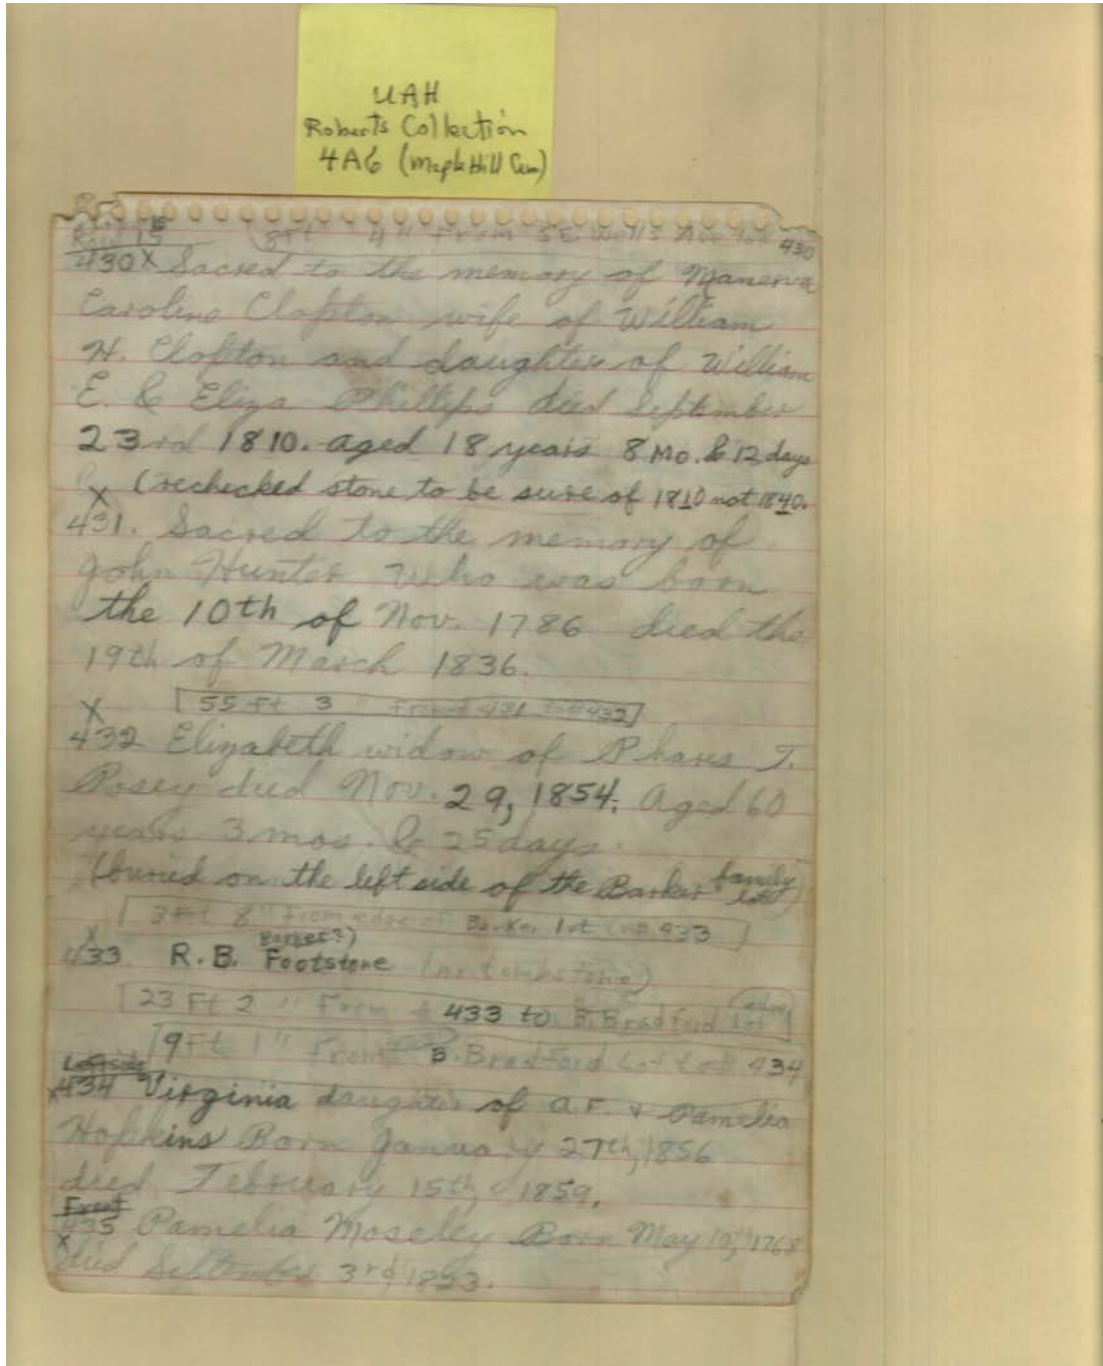 UAH
Roberts Collection
4A6 (Maple Hill Cem)
Row 15 8Ft 4" From SE Wells Ave to # 430
430 X Sacred to the memory of Manerva
Caroline Clopton wife of William
H. Clopton and daughter of William
E. & Eliza Phillips died September
23rd 1810. aged 18 years 8 Mo. & 12 days
X (rechecked stone to be sure of 1810 not 1840.
431. Sacred to the memory of
John Hunter who was born
the 10th of Nov. 1786 died the
19th of March 1836.
[55 Ft 3 " From # 431 to # 432]
X
432 Elizabeth widow of Phares T.
Posey died Nov. 29, 1854. Aged 60
years 3 mos. & 25 days.
(buried on the left side of the Barker family lot)
[3 Ft 8" From edge of Barker lot to # 433]
X Barker?)
433 R.B. Footstone (no tombstone)
[23 Ft 2 " From # 433 to B. Bradford Lot]
[9Ft 1" From B. Bradford Lot to # 434
Leftside
X 434 Virginia daughter of A.F. & Pamelia
Hopkins Born January 27th, 1856
died February 15th, 1859.
Front
435 Pamelia Moseley Born May 10th, 1768
X died September 3rd, 1853.